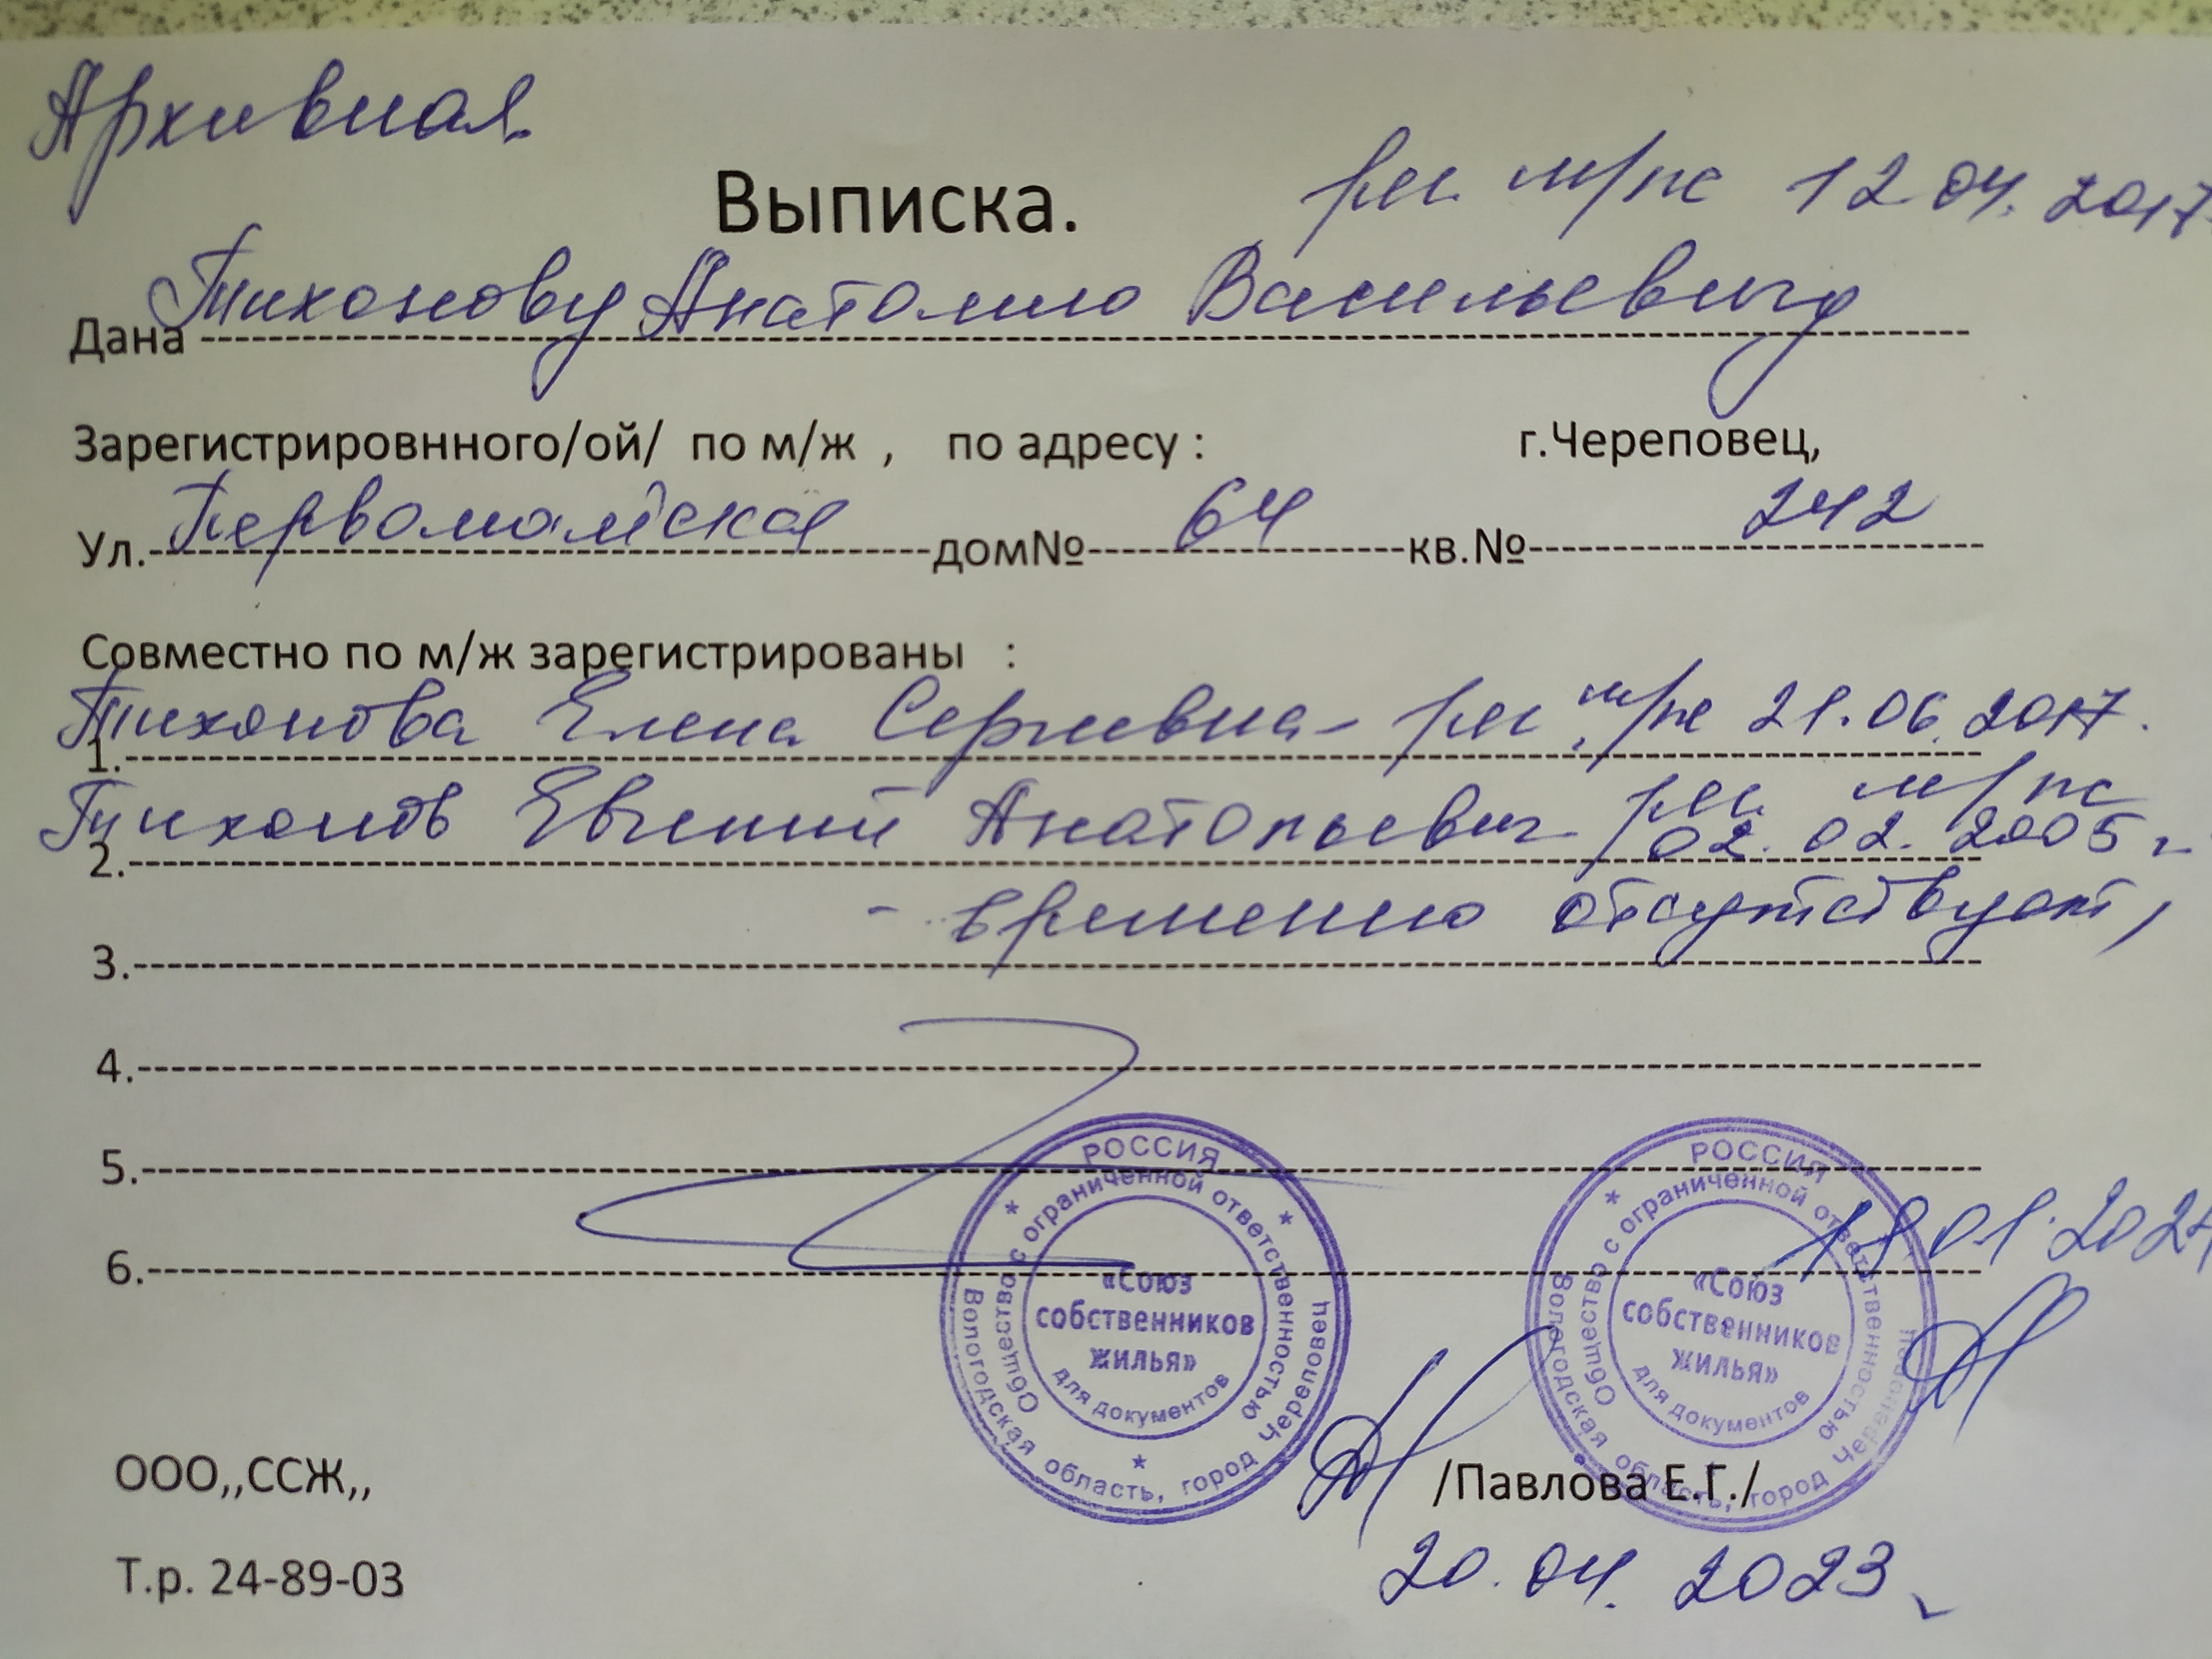 Архивная
Выписка. рег. м/жс 12.04.2017
Дана Тихонову Анатолию Васильевичу
Зарегистрировнного/ой/ по м/ж , по адресу : г.Череповец,
Ул. Первомайская дом№ 64 кв.№ 242
Совместно по м/ж зарегистрированы :
1. Тихонова Елена Сергеевна - рег. м/жс 21.06.2017.
2. Тихонов Евгений Анатольевич рег. м/жс
02.02.2005 г.
- временно отсутствует,
3.
4.
5.
6.
РОССИЯ
Вологодская область, город Череповец
Общество с ограниченной ответственностью
«Союз
собственников
жилья»
для документов
РОССИЯ
Вологодская область, город Череповец
Общество с ограниченной ответственностью
«Союз
собственников
жилья»
для документов
ООО,,ССЖ,, /Павлова Е.Г./
Т.р. 24-89-03 20.04.2023 г.